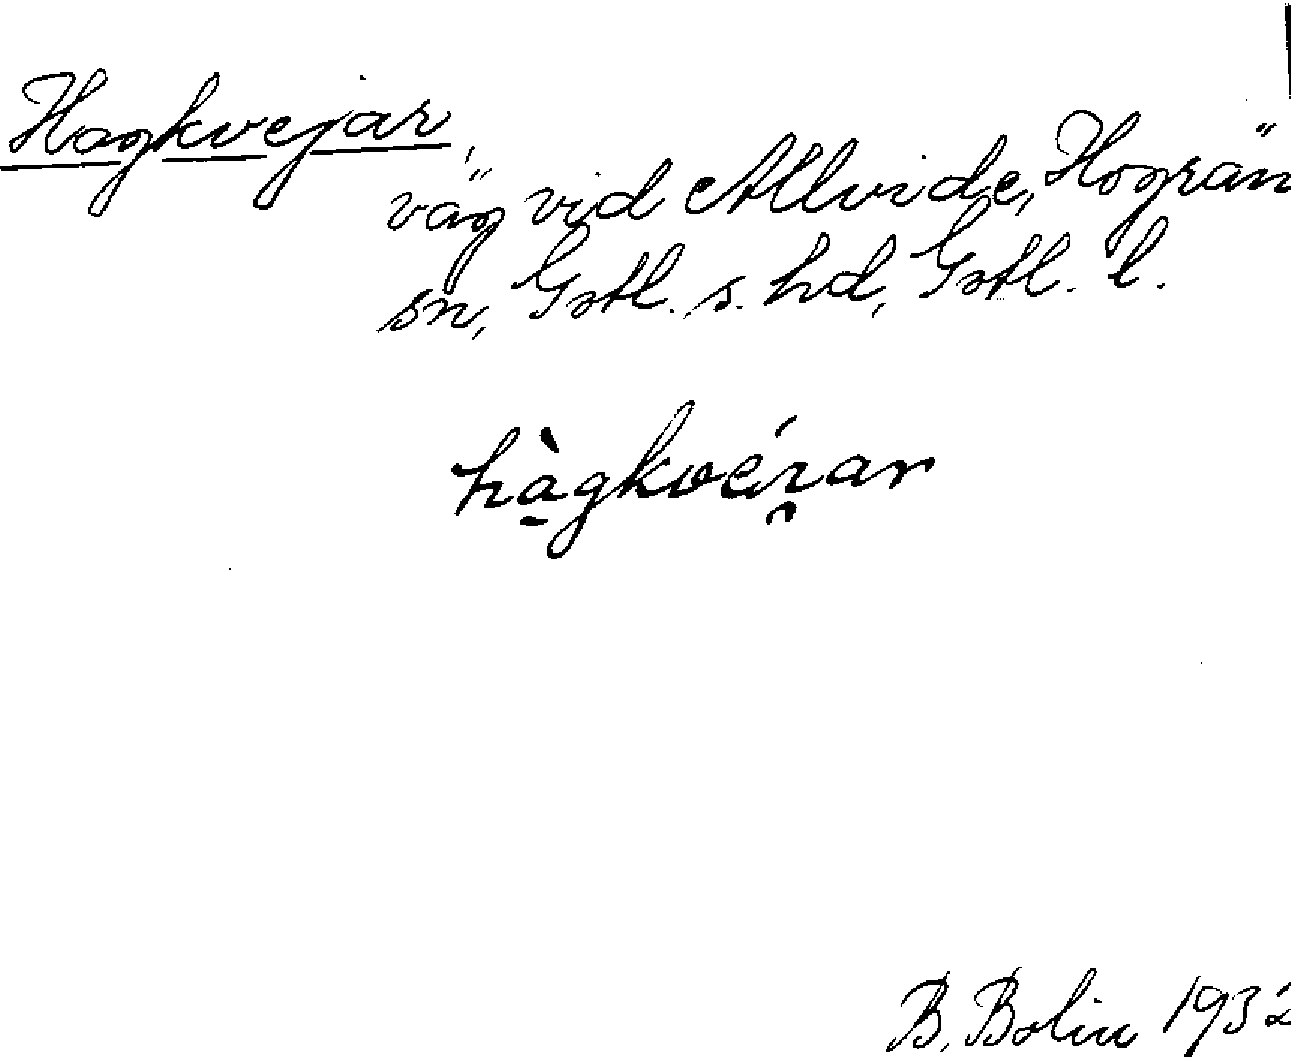 Hagkvejar,
väg vid Allvide, Hogrän
sn, Gotl. s. hd, Gotl. l.
hàgkvéi̯ar
B. Bolin 1932